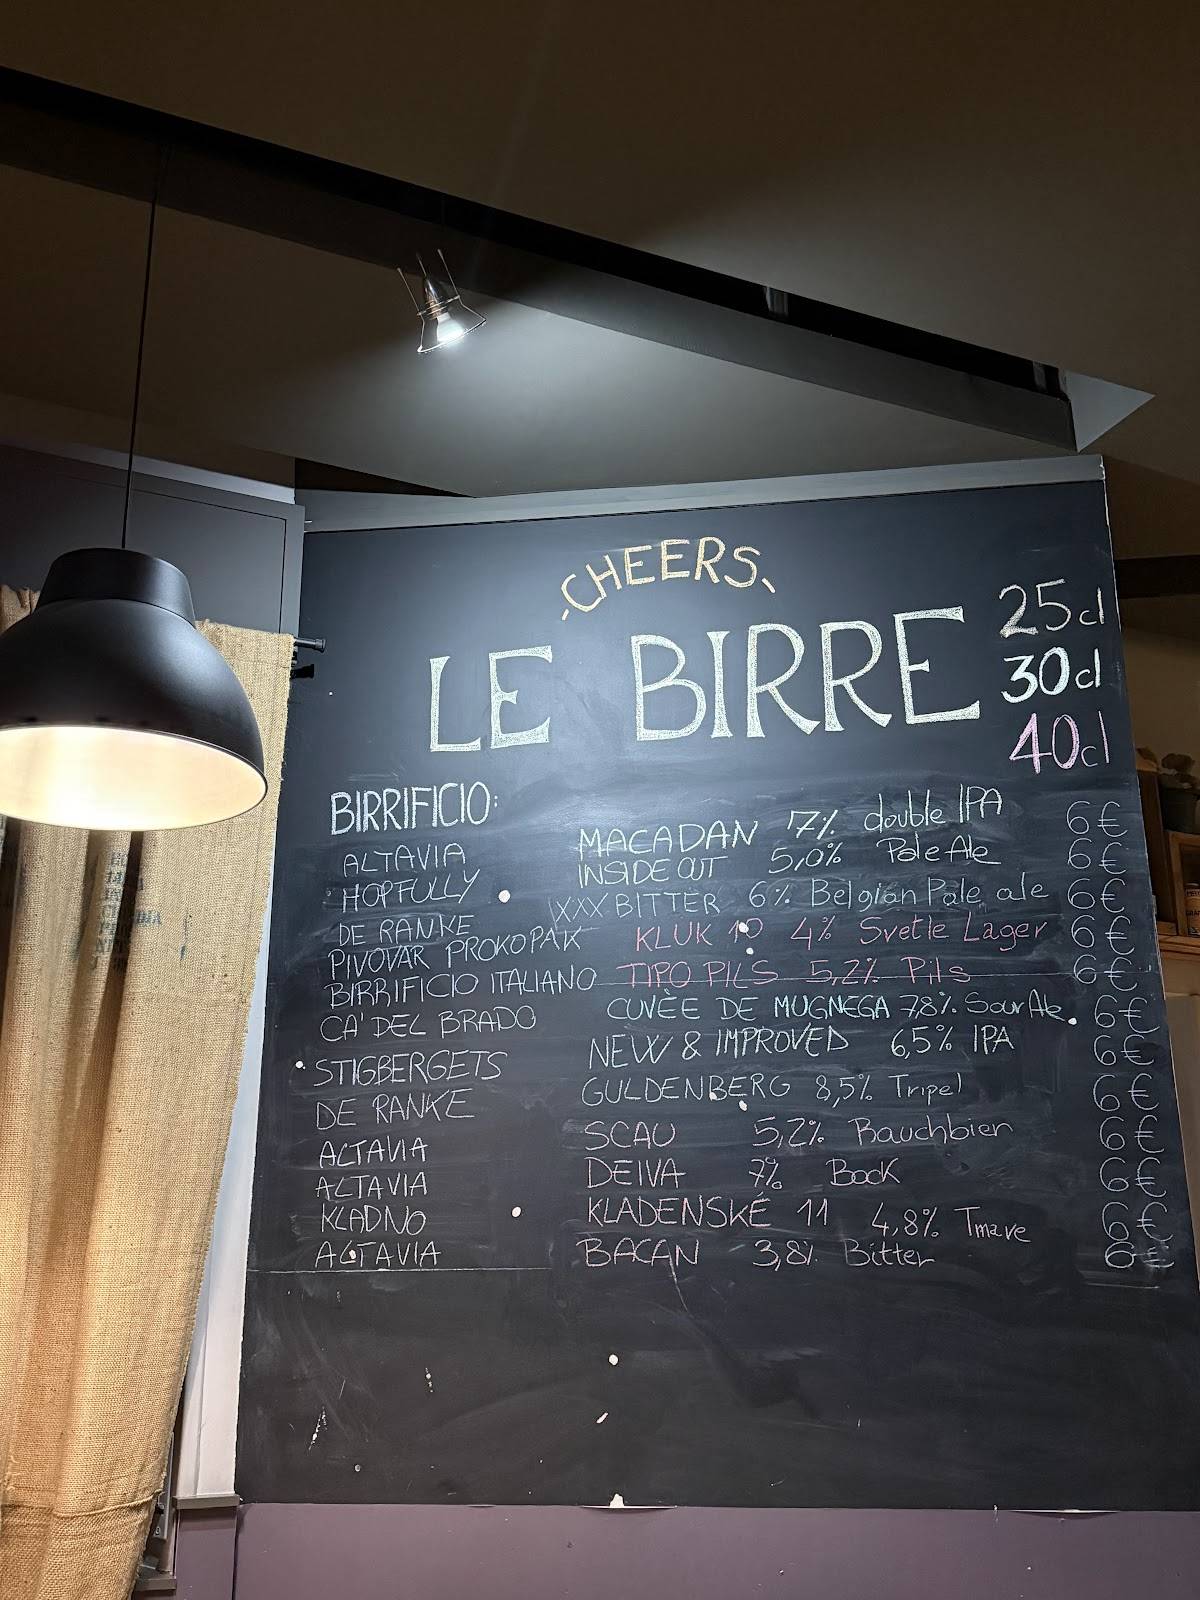 -CHEERS-
LE BIRRE
25cl
30cl
40cl
BIRRIFICIO:
ALTAVIA MACADAN 7% double IPA 6€
HOPFULLY INSIDE OUT 5,0% Pale Ale 6€
DE RANKE XXX BITTER 6% Belgian Pale ale 6€
PIVOVAR PROKOPAK KLUK 10 4% Svetle Lager 6€
BIRRIFICIO ITALIANO TIPO PILS 5,2% Pils 6€
CA' DEL BRADO CUVÈE DE MUGNEGA 7,8% Sour Ale 6€
STIGBERGETS NEW & IMPROVED 6,5% IPA 6€
DE RANKE GULDENBERG 8,5% Tripel 6€
ALTAVIA SCAU 5,2% Rauchbier 6€
ALTAVIA DEIVA 7% Bock 6€
KLADNO KLADENSKÉ 11 4,8% Tmave 6€
ALTAVIA BACAN 3,8% Bitter 6€